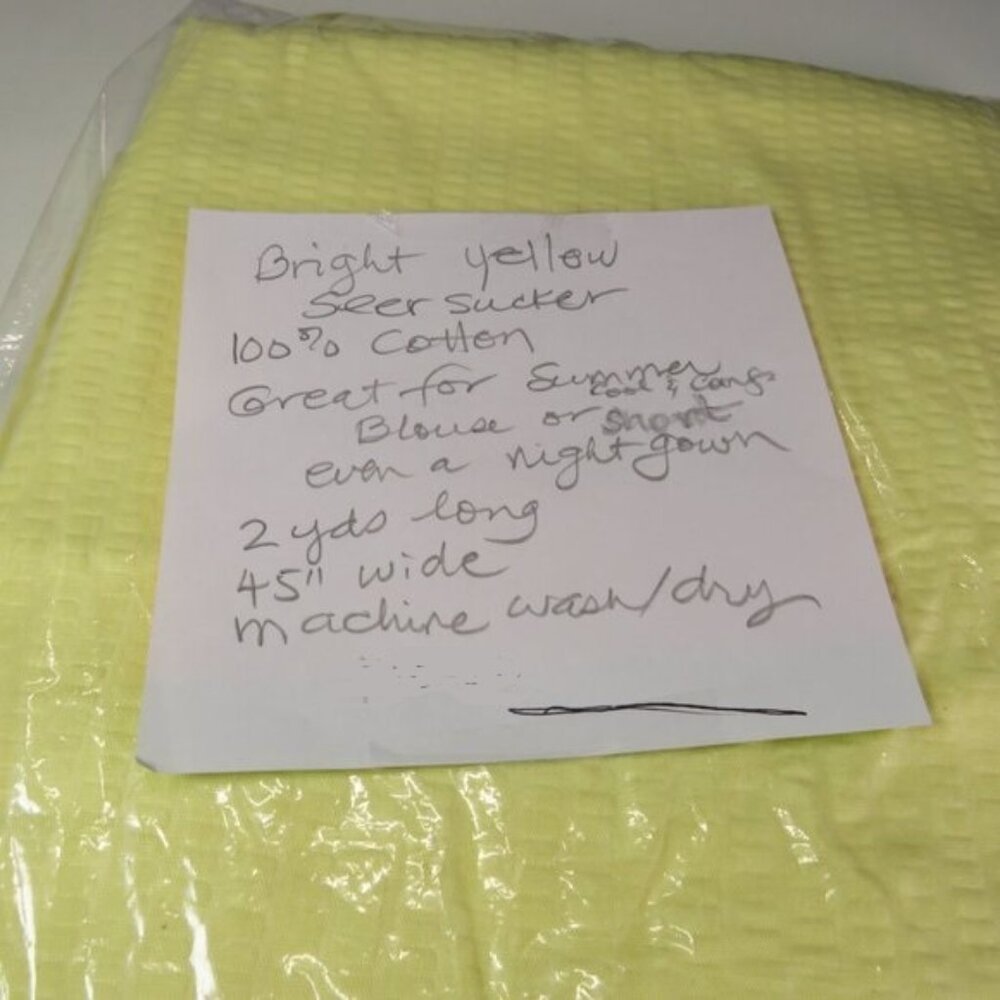 Bright yellow
Seer sucker
100% Cotton
Great for Summer
cool &
Blouse or short
even a nightgown
2 yds long
45" wide
machine wash/dry